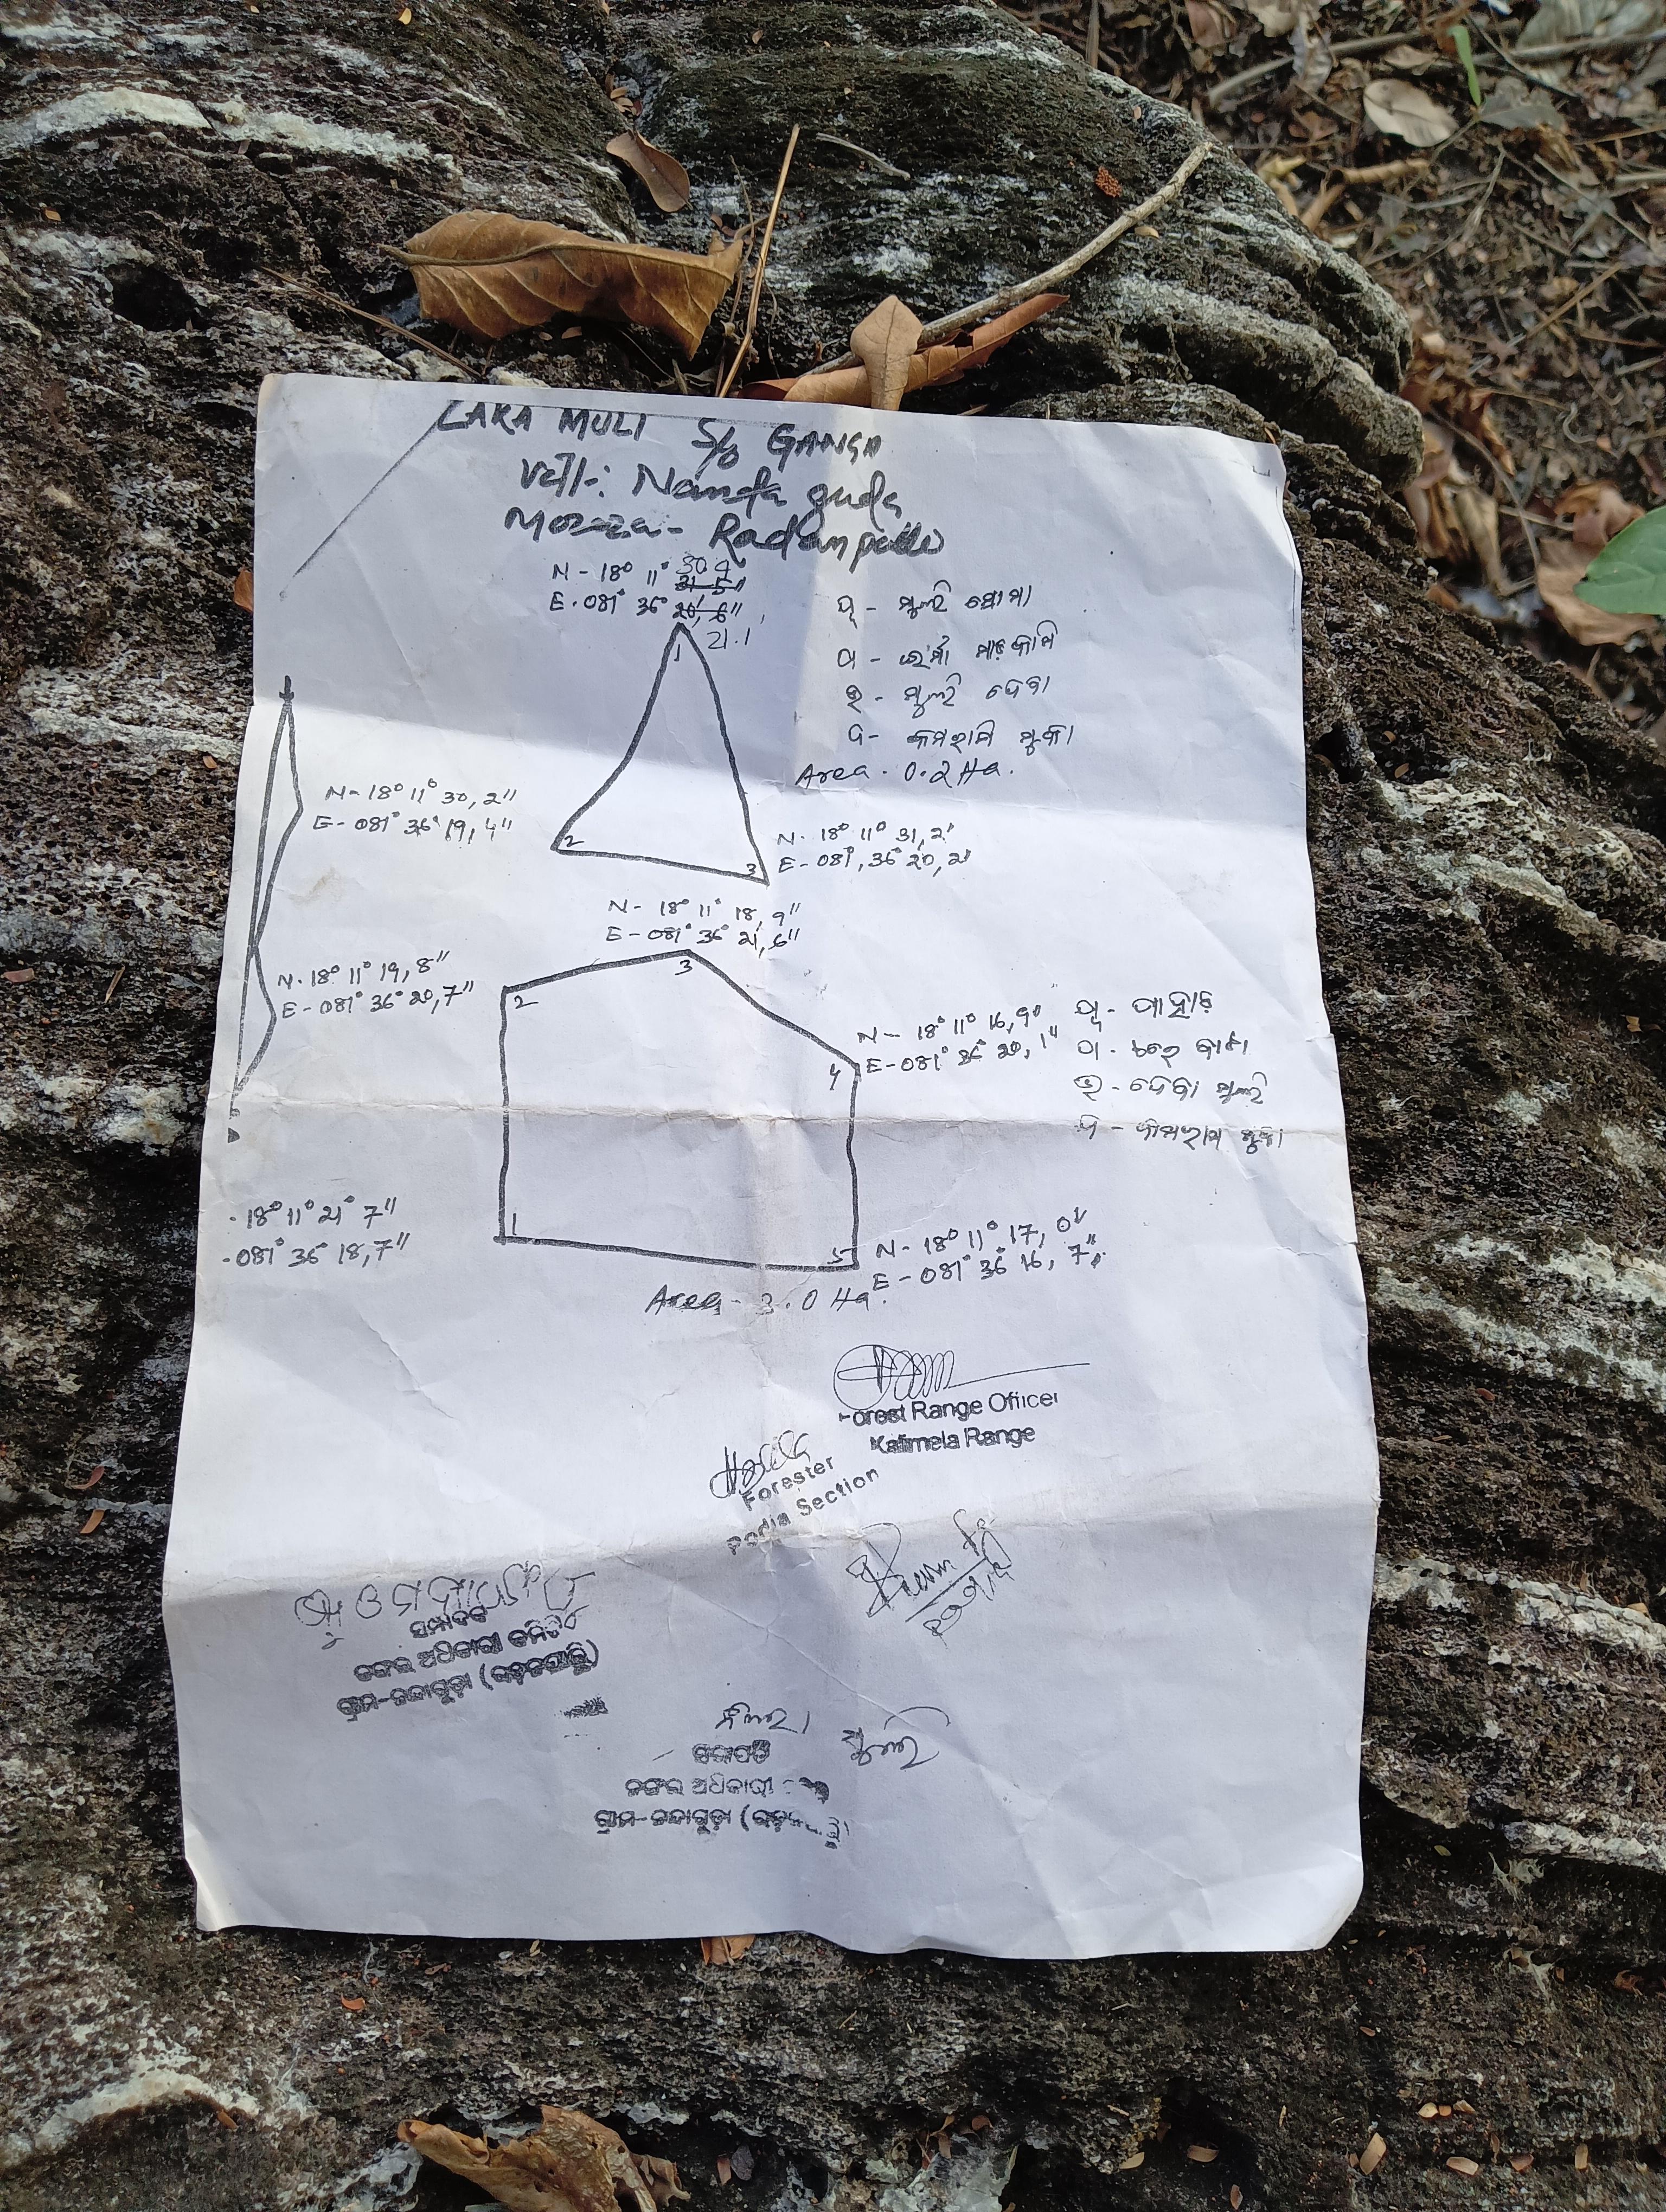 LAKA MULI S/o GANGA
Vill-: Nanda guda
Mozza - Radampalli
N - 18° 11° 30.9
31 5"
E. 081° 36° 20, 6"
21.1
1
2
3
ପୂ - ମୁଲି ଯୋମା
ପ - ଇର୍ମା ମାଡ଼କାମି
ଉ - ମୁଲି ଦେବା
ଦ - କମରାମି ମୁକା
Area - 0.2 Ha.
N - 18° 11° 30, 2"
E - 081° 36° 19, 4"
N - 18° 11° 31, 2"
E - 081°, 36° 20, 2"
N - 18° 11° 18, 9"
E - 081° 36° 21, 6"
N - 18° 11° 19, 8"
E - 081° 36° 20, 7"
2
3
4
N - 18° 11° 16, 9"
E - 081° 36° 20, 1"
ପୂ - ପାହାଡ଼
ଉ - ଦେବା ମୁଲି
ଦ - କମରାମି ମୁକା
- 18° 11° 21° 7"
- 081° 36° 18, 7"
1
5
N - 18° 11° 17, 0"
E - 081° 36° 16, 7"
Area - 3.0 Ha.
Forest Range Officer
Kalimela Range
Forester
Podia Section
ସମ୍ପାଦକ
ଜଙ୍ଗଲ ଅଧିକାରୀ କମିଟି
ଗ୍ରାମ-ନନ୍ଦାଗୁଡ଼ା
ମୁଲି
ସଭାପତି
ଜଙ୍ଗଲ ଅଧିକାରୀ
ଗ୍ରାମ-ନନ୍ଦାଗୁଡ଼ା